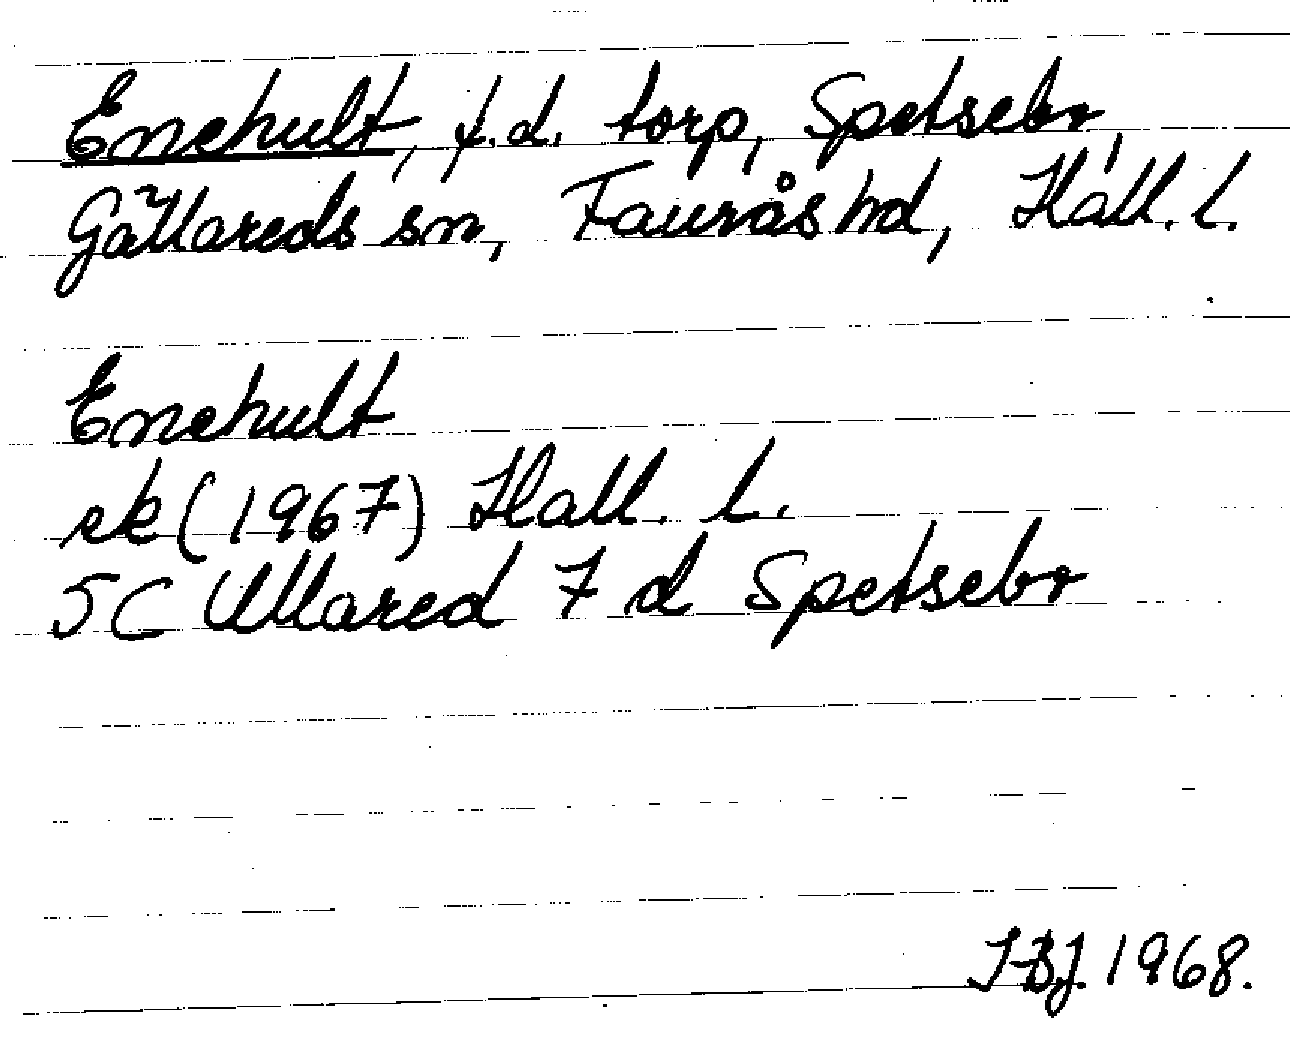 Enehult, f.d. torp, Spetsebo,
Gällareds sn, Faurås hd, Hall. l.
Enehult
ek (1967) Hall. l.
5C Ullared 7 d Spetsebo
IBJ. 1968.